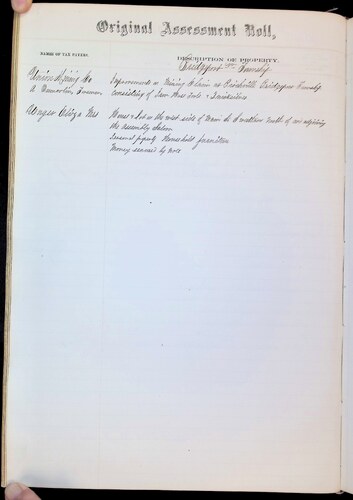 Original Assessment Roll,
NAMES OF TAX PAYERS.
DESCRIPTION OF PROPERTY.
Bridgeport Township
Union Mining Co
Improvements on Mining Claim at Township
A Foreman
consisting of
Unger Eliza Mrs
House & Lot on the west side of Main St north of and adjoining
the Assembly Saloon
Personal property Household furniture
Money secured by note